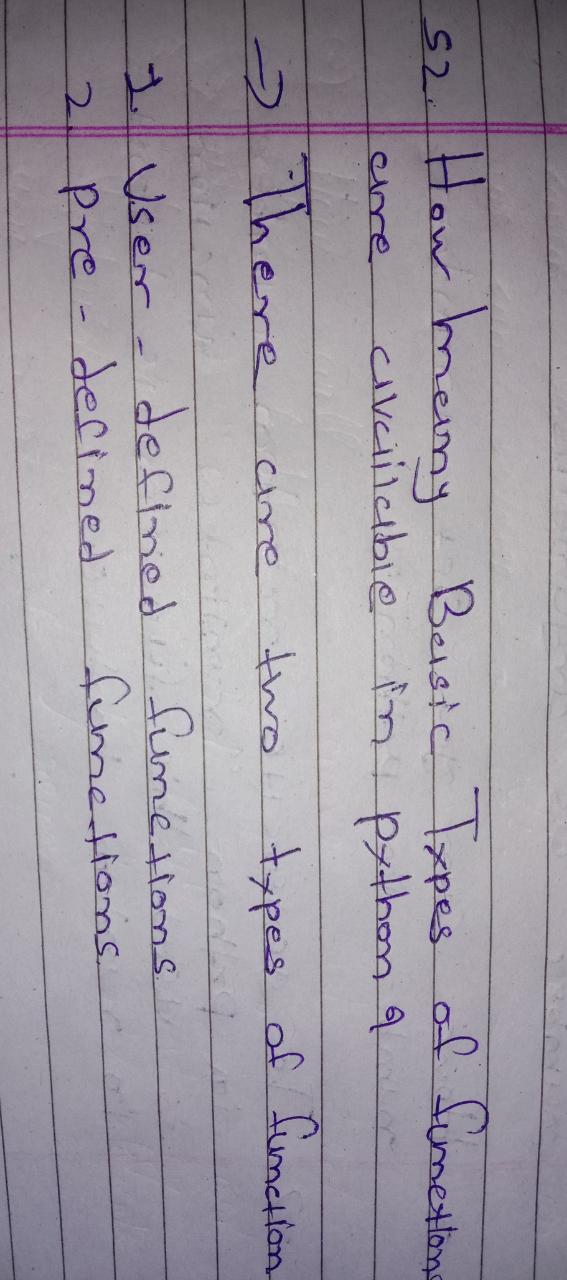 52. How many Basic Types of functions
are available in python ?
⇒ There are two types of function
1. User - defined functions.
2 pre - defined functions.